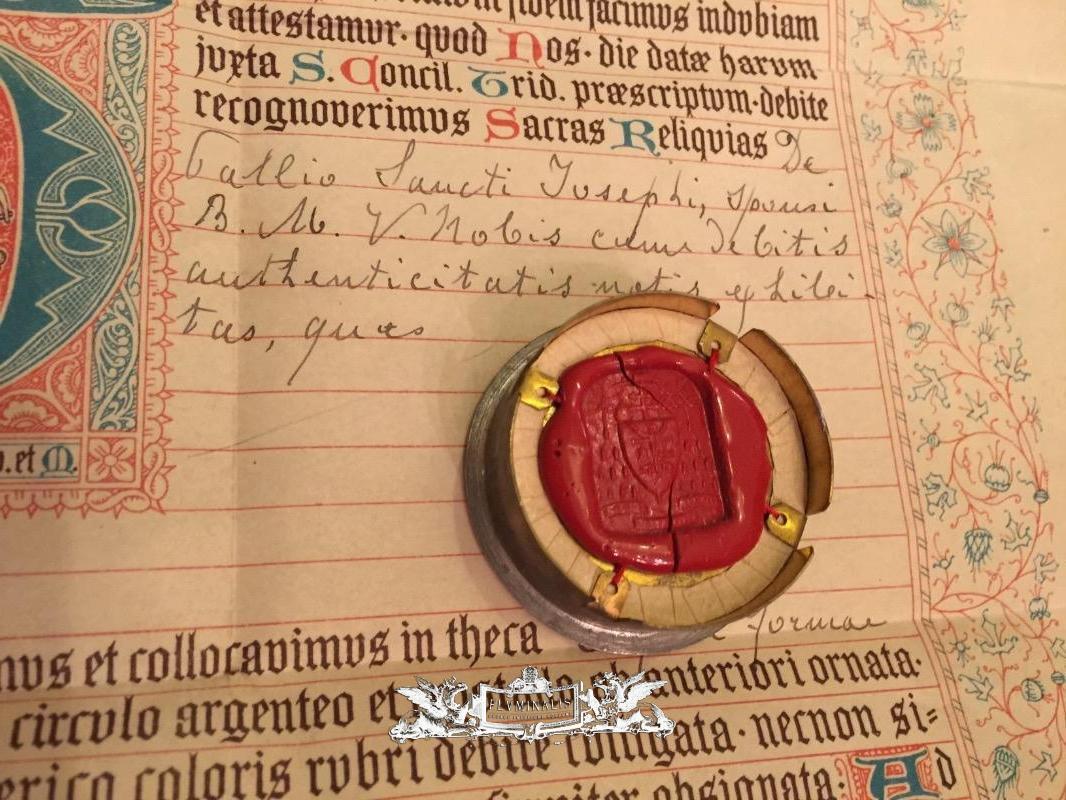 fidem facimus indubiam
et attestamur· quod Nos· die datæ harum
juxta S. Concil. Trid. præscriptum· debite
recognoverimus Sacras Reliquias De
Pallio Sancti Josephi, sponsi
B. M. V. Nobis cum debitis
authenticitatis notis exhibi-
tas, quas
et M.
mus et collocavimus in theca
formae
circulo argenteo et anteriori ornata·
coloris rubri debite colligata· necnon si=
obsignata: Ad
FLUMINALIS